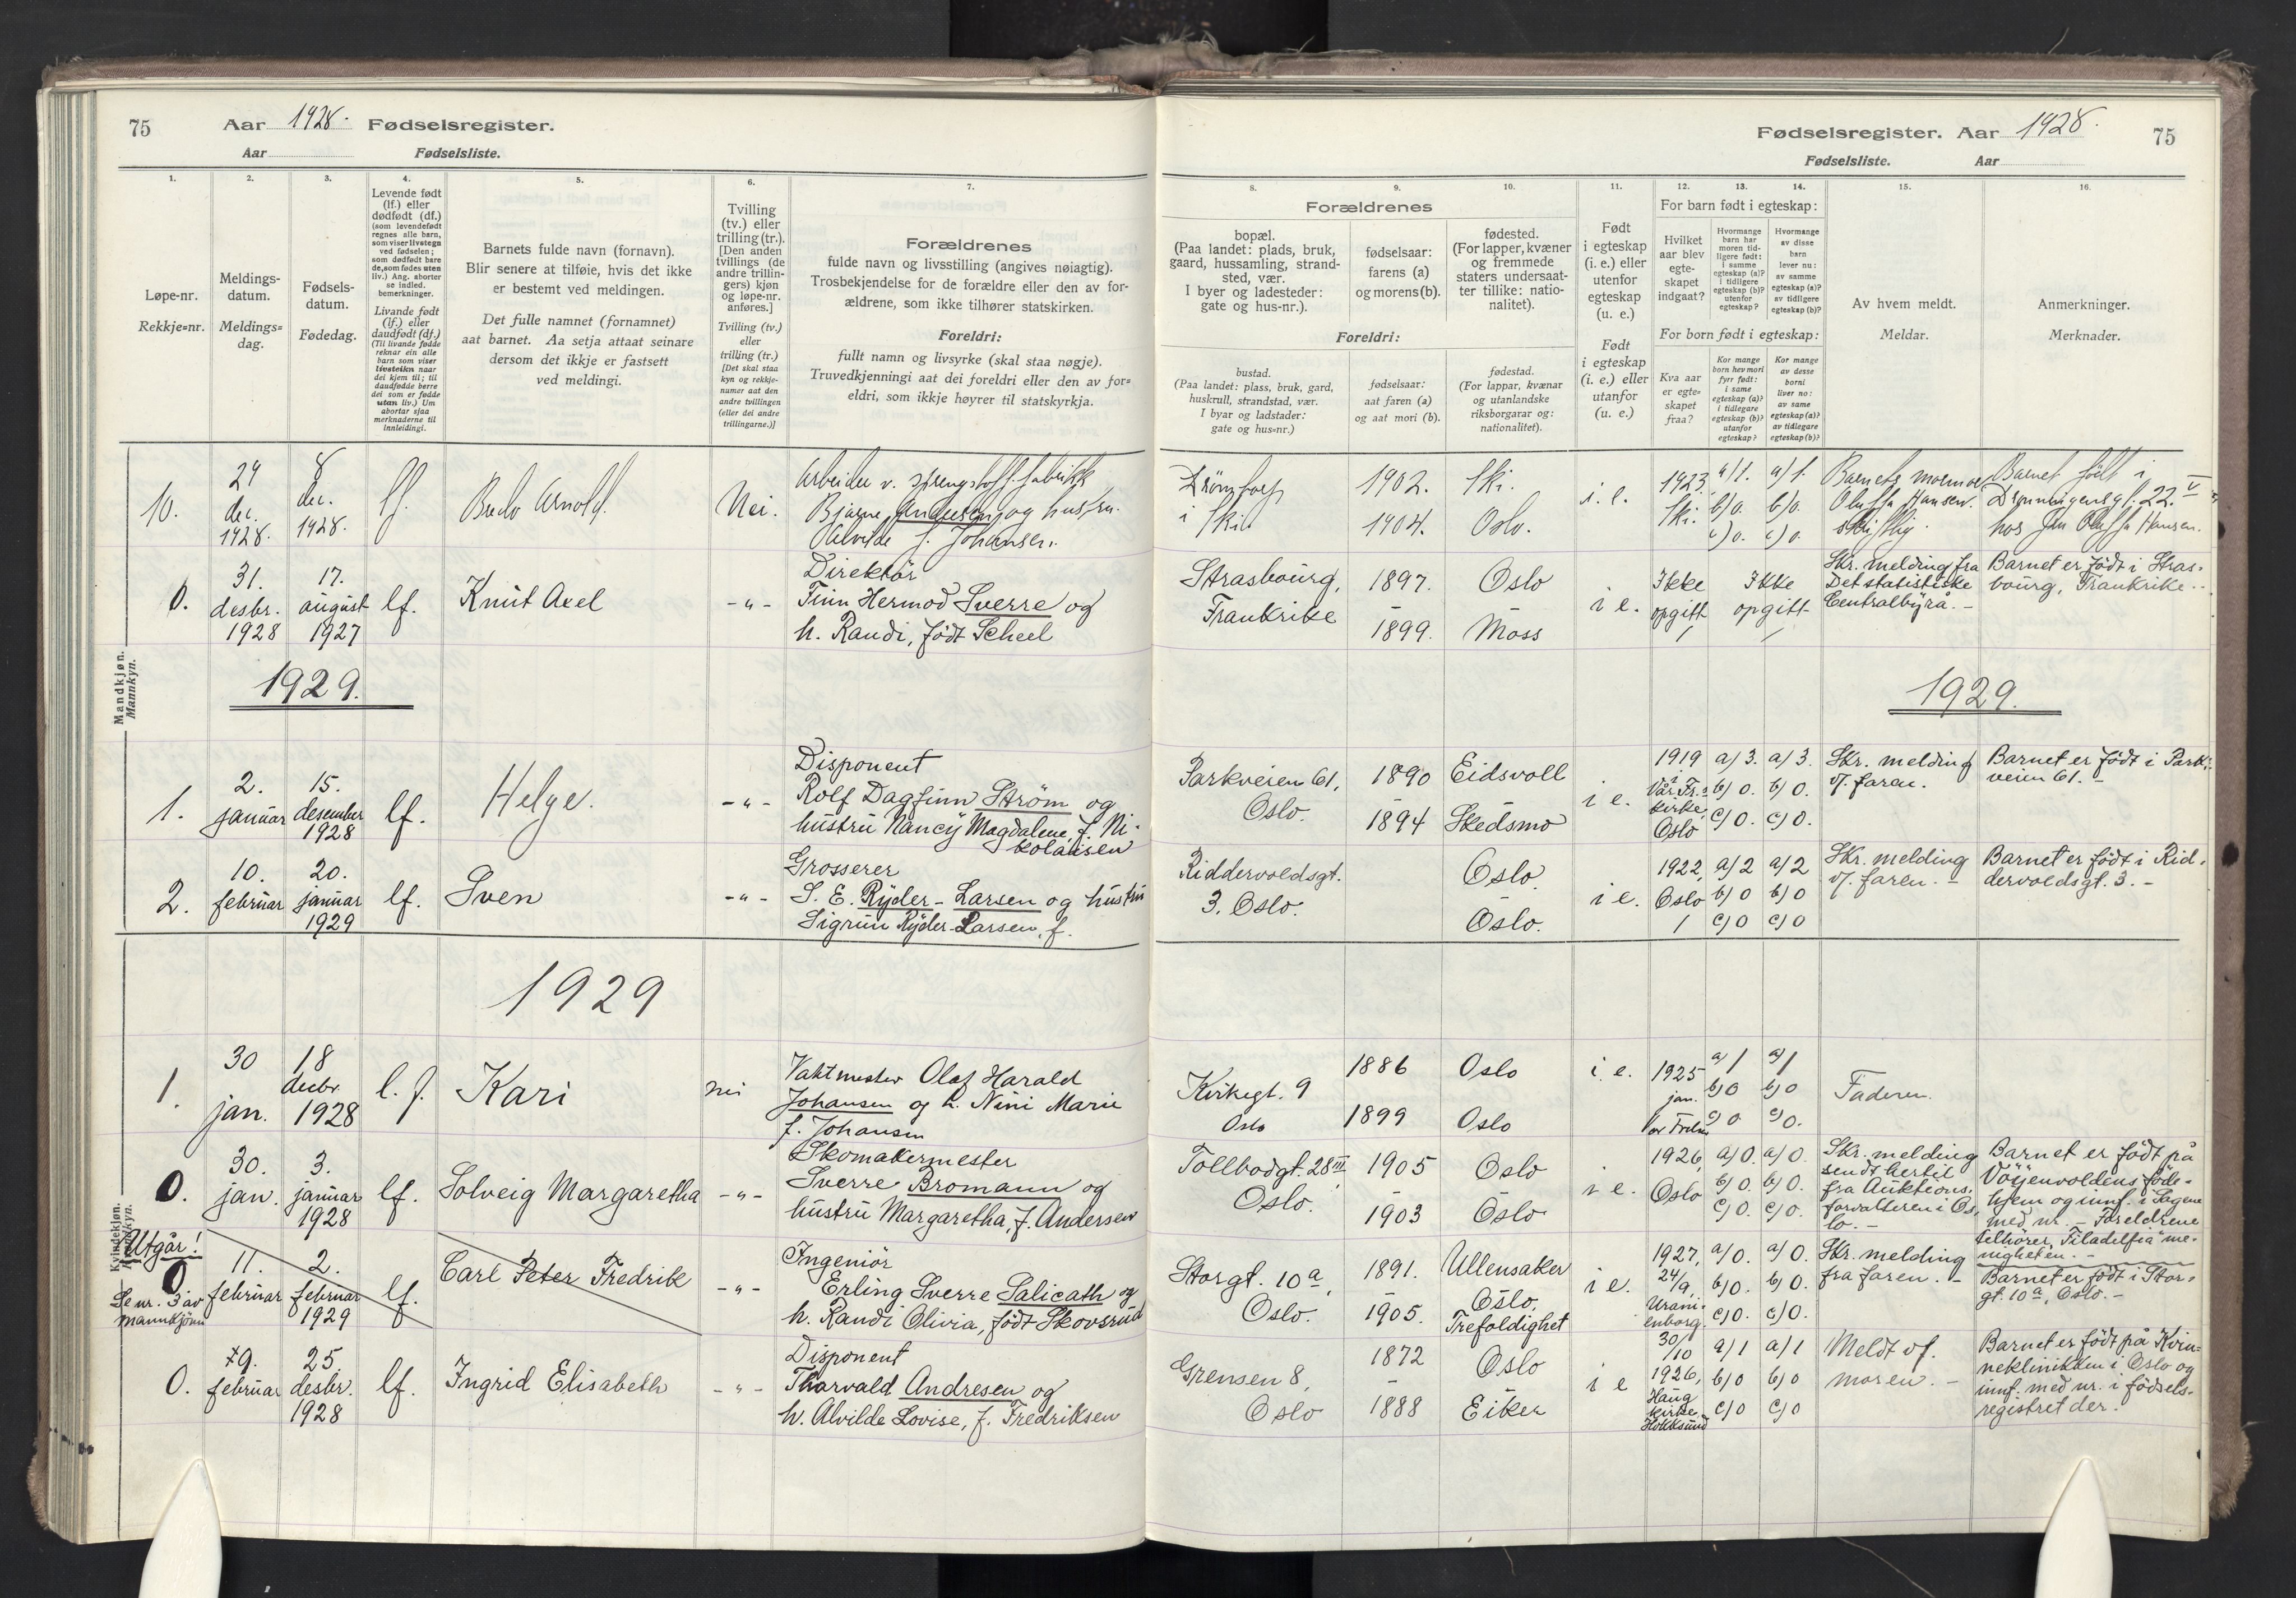 75 Aar 1928. Fødselsregister.
Aar Fødselsliste.
Fødselsregister. Aar 1928. 75
Fødselsliste. Aar
1.
Løpe-nr.
Rekkje=nr.
2.
Meldings-
datum.
Meldings=
dag.
3.
Fødsels-
datum.
Fødedag.
4.
Levende født
(lf.) eller
dødfødt (df.)
(som levendefødt
regnes alle barn,
som viser livstegn
ved fødselen;
som dødfødt bare
de, som fødes uten
liv.) Ang. aborter
se indled.
bemerkninger.
Livande født
(lf.) eller
daudfødt (df.)
(Til livande fødde
reknar ein alle
barn som viser
livsteikn naar
dei kjem til; til
daudfødde berre
dei som er fødde
utan liv.) Um
abortar sjaa
merknaderne til
innleidingi.
5.
Barnets fulde navn (fornavn).
Blir senere at tilføie, hvis det ikke
er bestemt ved meldingen.
Det fulle namnet (fornamnet)
aat barnet. Aa setja attaat seinare
dersom det ikkje er fastsett
ved meldingi.
6.
Tvilling
(tv.) eller
trilling (tr.).
[Den anden
tvillings (de
andre trillin-
gers) kjøn
og løpe-nr.
anføres.]
Tvilling (tv.)
eller
trilling (tr.)
[Det skal staa
kyn og rekkje-
numer aat den
andre tvillingen
(eller dei andre
trillingarne.)]
7.
Forældrenes
fulde navn og livsstilling (angives nøiagtig).
Trosbekjendelse for de forældre eller den av for-
ældrene, som ikke tilhører statskirken.
Foreldri:
fullt namn og livsyrke (skal staa nøgje).
Truvedkjenningi aat dei foreldri eller den av for=
eldri, som ikkje høyrer til statskyrkja.
8. 9. 10.
Forældrenes
bopæl.
(Paa landet: plads, bruk,
gaard, hussamling, strand-
sted, vær.
I byer og ladesteder:
gate og hus-nr.).
fødselsaar:
farens (a)
og morens (b).
fødested.
(For lapper, kvæner
og fremmede
staters undersaat-
ter tillike: natio-
nalitet).
Foreldri:
bustad.
(Paa landet: plass, bruk, gard,
huskrull, strandstad, vær.
I byar og ladstader:
gate og hus=nr.)
fødselsaar:
aat faren (a)
og aat mori (b).
fødestad.
(For lappar, kvænar
og utanlandske
riksborgarar og:
nationalitet).
11.
Født
i egteskap
(i. e.) eller
utenfor
egteskap
(u. e.)
Født
i egteskap
(i. e.) eller
utanfor
(u. e.)
12. 13. 14.
For barn født i egteskap:
Hvilket
aar blev
egte-
skapet
indgaat?
Hvormange
barn har
moren tid-
ligere født:
i samme
egteskap (a)?
i tidligere
egteskap (b)?
utenfor
egteskap?
Hvormange
av disse
barn
lever nu:
av samme
egteskap (a)?
av tidligere
egteskap (b)?
For born født i egteskap:
Kva aar
er egte=
skapet
fraa?
Kor mange
born hev mori
fyrr født:
i same
egteskap (a)?
i tidlegare
egteskap (b)?
utanfor
egteskap?
Kor mange
av desse
borni
liver no:
av same
egteskap (a)?
av tidlegare
egteskap (b)?
15.
Av hvem meldt.
Meldar.
16.
Anmerkninger.
Merknader.
Mandkjøn.
Mannkyn.
10.
24
dec.
1928.
8
dec.
1928.
lf.
Arnold.
Nei.
Arbeider v. sprengstoff-fabrikk
Bjarne og hustru
f. Johansen.
i Ski.
1902.
1904.
Ski.
Oslo.
i. e.
1923.
Ski.
a/1. a/1.
b/o. b/o.
c/o. c/o.
Barnets mormor
Hansen.
skriftlig.
Barnet født i
Dronningensgt. 22 V
hos fru Hansen.
0.
31.
desbr.
1928
17.
august
1927
lf.
Knut Axel
-"-
Direktör
Finn Hermod Sverre og
h. Randi, født Scheel
Strasbourg,
Frankrike
1897.
1899.
Oslo
Moss
i e.
Ikke
opgitt
Ikke
opgitt
Skr. melding fra
Det statistiske
Centralbyrå. -
Barnet er født i Stras-
bourg, Frankrike.-
1929.
1929.
1.
2.
januar
15.
desember
1928
lf.
Helge.
-"-
Disponent
Rolf Dagfinn Strøm og
hustru Nancy Magdalene, f. Ni-
kolaisen
Parkveien 61,
Oslo.
1890
1894
Eidsvoll
Skedsmo
i e.
1919
i
Vår Fr.s
kirke,
Oslo
a/ 3. a/ 3.
b/ 0. b/ 0.
c/ 0. c/ 0.
Skr. melding
v/ faren.
Barnet er født i Park-
veien 61. -
2.
10.
februar
20.
januar
1929
lf.
Sven
-"-
Grosserer
S. E. Ryder-Larsen og hustru
Sigrun Ryder-Larsen, f.
Riddervoldsgt.
3. Oslo.
Oslo.
Oslo.
i e.
1922,
Oslo
a/2 a/2
b/0 b/0
c/0 c/0
Skr. melding
v/. faren. -
Barnet er født i Rid-
dervoldsgt. 3. -
1929
Kvindekjøn.
Kvinnekyn.
1.
30
jan.
18
decbr
1928
l. f.
Kari
nei
Vaktmester Olaf Harald
Johansen og h. Nini Marie
f. Johansen
Kirkegt. 9
Oslo
1886
1899
Oslo
Oslo
i. e.
1925
jan.
a/ 1 a/ 1
b/ 0 b/ 0
c/ 0 c/ 0.
Faderen.
0.
30.
jan.
3.
januar
1928
lf.
Solveig Margaretha
-"-
Skomakermester
Sverre Bromann og
hustru Margaretha, f. Andersen
Tollbodgt. 28 III,
Oslo.
1905
1903
Oslo
Oslo
i e.
1926,
Oslo
a/0. a/0.
b/0. b/0.
c/0. c/0.
Skr. melding
sendt hertil
fra Auktions-
forvalteren i Os-
lo. -
Barnet er født på
Vöyenvoldens føde-
hjem og innf. i Sagene
med nr. - Foreldrene
tilhører "Filadelfia" me-
nigheten. -
Utgår!
0.
Se nr. 3 av
mannkjønn
11.
februar
2.
februar
1929
lf.
Carl Peter Fredrik
-"-
Ingeniør
Erling Sverre Salicath og
h. Randi Olivia, født Skovsrud
Storgt. 10a,
Oslo.
1891.
1905.
Ullensaker
Oslo,
Trefoldighet
i e.
1927,
24/9,
Urani-
enborg.
a/0. a/0.
b/0. b/0.
c/0. c/0.
Skr. melding
fra faren. -
Barnet er født i Stor-
gt. 10a, Oslo. -
0.
februar
25.
desbr.
1928
lf.
Ingrid Elisabeth
-"-
Disponent
Thorvald Andresen og
h. Alvilde Lovise, f. Fredriksen
Grensen 8,
Oslo
1872
1888
Oslo
Eiker
i e
30/10
1926,
Haug
kirke,
Hokksund
a/1 a/1
b/0 b/0
c/0 c/0
Meldt v/.
moren. -
Barnet er født på Kvin-
neklinikken i Oslo og
innf. med nr. i fødsels-
registret der.